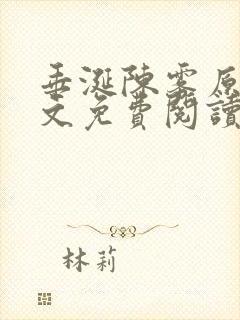 垂涎陳霧原
文免費閱讀
林莉